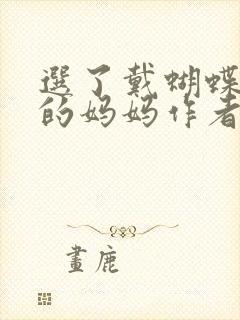 選了戴蝴蝶
的妈妈作者
畫鹿